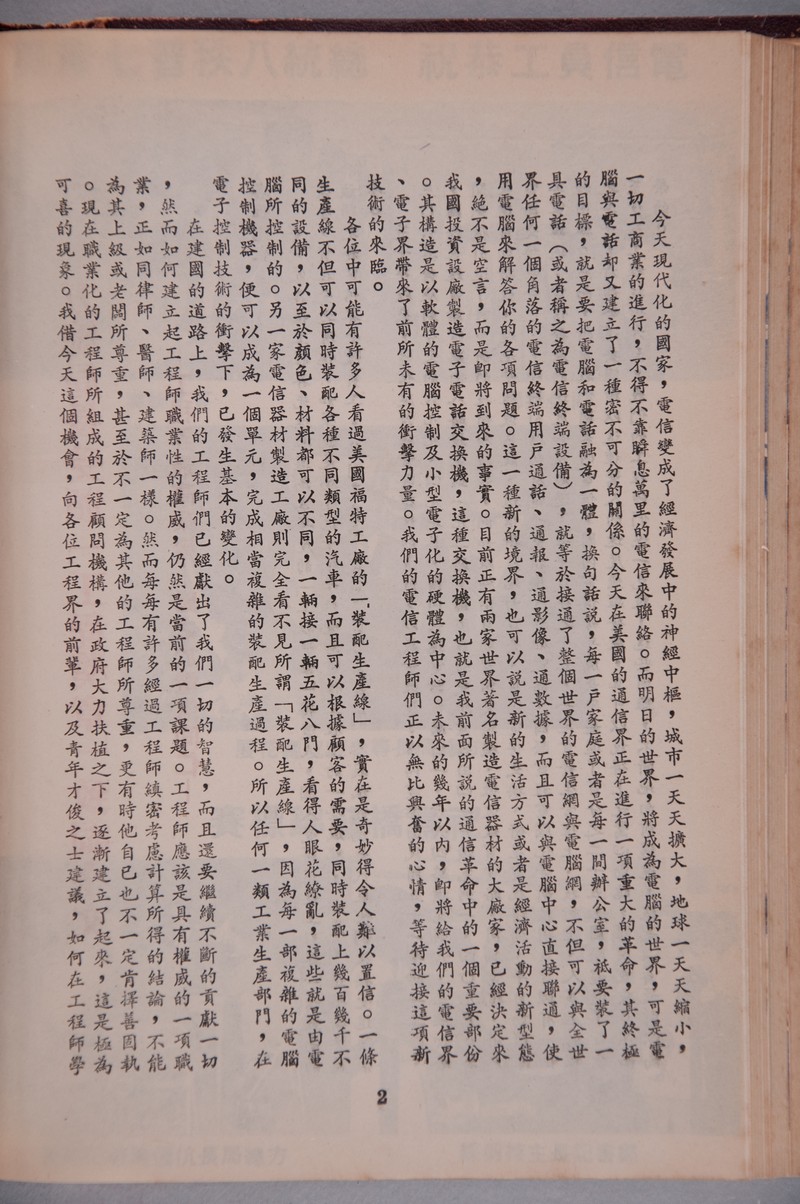 今天現代化的國家，電信變成了經濟發展中的神經中樞，城市一天天擴大，地球一天天縮小，
一切工商業的進行，不得不靠瞬息萬里的電信來聯絡。而明日的世界，將成為電腦的世界，可是電
腦與電話却又建立了一種密不可分的關係。今天在美國的通信界正在進行一項重大的革命，其終極
的目標，就是要把電腦和電話融為一體，換句話說，每一戶家庭或者是每一間辦公室，祇要裝了一
具電話（或者稱之為電信終端設備），就等於接通了整個世界的電信網與電腦網，不但可以與全世
界任何一個角落的電信終端用戶通話、通報、通影像、通數據，而且可以與電腦中心直接聯通，使
用電腦來解答你的各項問題。這一種新的境界，也可以說是新的生活方式或者是經濟活動的新型態
，絕不是空言，而是即將到來的事實。目前正有兩家世界著名製造電信器材的大廠家，已經決定來
我國投資設廠製造電子電話交換機，這種交換機，也就是我前面所說的通信革命中的一個重要部份
。其構造是以軟體的電腦控制及小型電子化的硬體為中心。未來的幾年以內，即將給我們的電信界
、電子界帶來了前所未有的衝擊力量。我們的電信工程師們正以無比興奮的心情，等待迎接這項新
技術的來臨。
各位中可能有許多人看過美國福特工廠的「裝配生產線」，實在是奇妙得令人難以置信。一條
生產線不但可以同時裝配各種不同類型的汽車，而且可以根據顧客的需要，同時裝配上幾百幾千不
同的設備，以至於顏色、材料都可以不同，一輛接一輛五花八門，看得人眼花繚亂，這些就是由電
腦所控制的。另一家電信器材製造工廠則完全看不見所謂「裝配生產線」，因為每一部複雜的電腦
控制機器，便可以成為一個單元，完成相當複雜的裝配生產過程。所以任何一類工業生產部門，在
電子控制技術的衝擊下，已發生基本的變化。
在建國的道路上，我們的工程師們已經獻出了我們一切的智慧，而且還要繼續不斷的貢獻一切
，然而如何建立起工程師職業性的權威，仍然是當前的一項課題。工程師應該是具有權威的一項職
業，正如同律師、醫師、建築師一樣。然而每每有許多經過工程師縝密考慮計算所得的結論，不能
為其上級或老闆所尊重，甚至於不一定為其他的工程師所尊重，更有時他自己也不一定肯擇善固執
。現在職業化的工程師所組成的工程顧問機構，在政府大力扶植之下，逐漸建立了起來，這是極為
可喜的現象。我借今天這個機會，向各位工程界的前輩，以及青年才俊之士建議，如何在工程師學
2